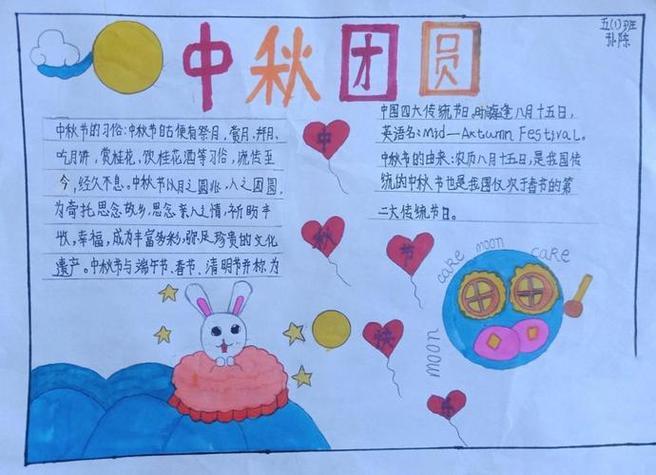 中秋团圆
五(1)班
孙陈
中秋节的习俗:中秋节自古便有祭月、赏月、拜月、
吃月饼、赏桂花、饮桂花酒等习俗,流传至
今,经久不息。中秋节以月之圆兆,人之团圆,
为寄托思念故乡,思念亲人之情,祈盼丰
收,幸福,成为丰富多彩,弥足珍贵的文化
遗产。中秋节与端午节、春节、清明节并称为
中国四大传统节日。时逢八月十五日,
英语名:Mid—Autumn Festival。
中秋节的由来:农历八月十五日,是我国传
统的中秋节也是我国仅次于春节的第
二大传统节日。
中
秋
节
快
乐
cake moon cake
moon